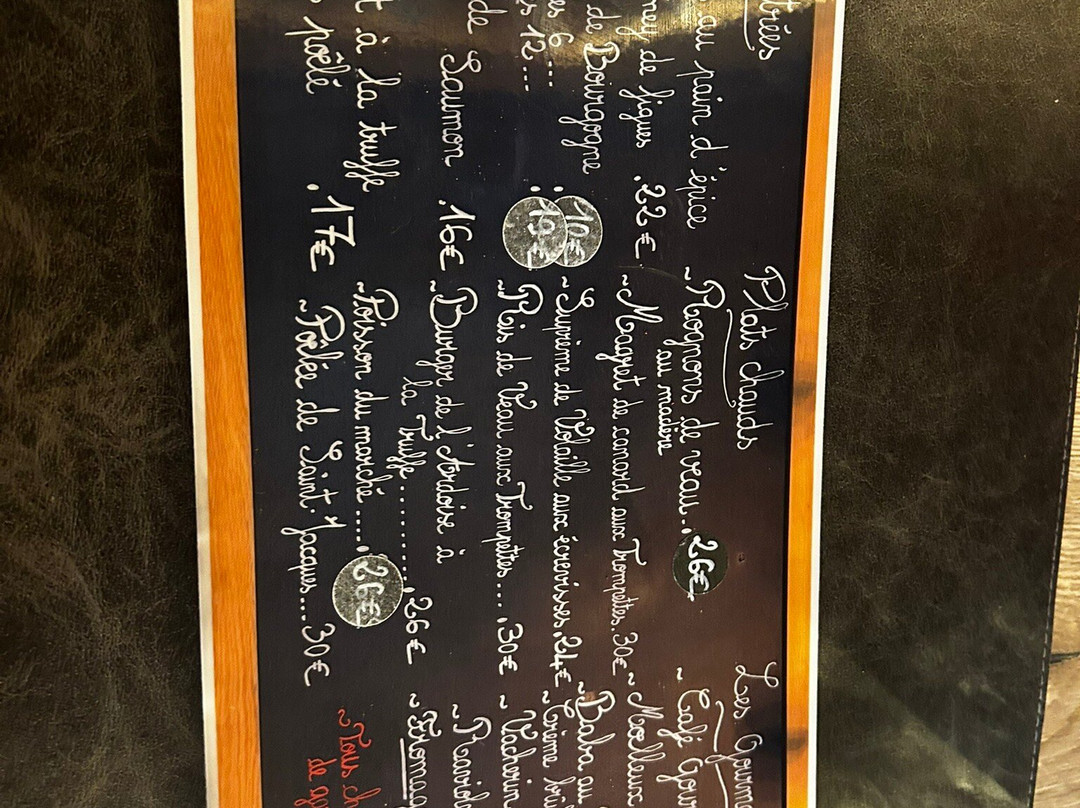 trées
au pain d'épice
ney de figues .22€
de Bourgogne
es 6 ... : 10€
s 12 ... : 19€
de Saumon .16€
t à la truffe
poêlé .17€
Plats chauds
~Rognons de veau . 26€
au madère
~Magret de canard aux Trompettes.30€
~Suprème de Volaille aux écrevisses.24€
~Ris de Veau aux Trompettes... .30€
~Burger de l'Ardoise à
la Truffe.......... .26€
~Poisson du marché ..... . 26€
~Poêlée de Saint-Jacques....30€
Les Gourm
~ Café Gour
~ Moelleux
~ Baba au
~ Crème brû
~ Vacherin
~ Raviol
~ Fromag
~Tous ch
de